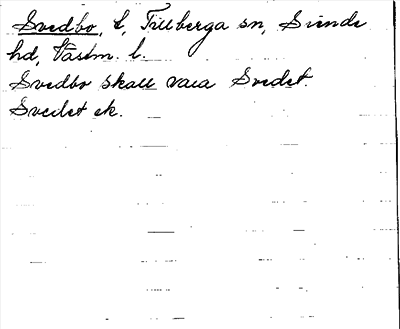 Svedbo, l, Tillberga sn, Siende
hd, Västm. l.
Svedbo skall vara Svedet.
Svedet ek.